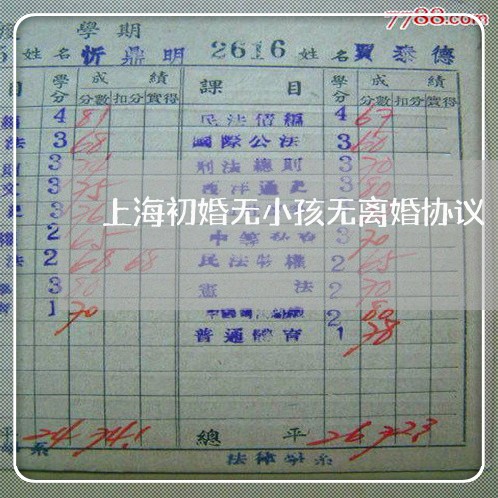 7788.com
學期
5 姓名 忻鼎明 2616 姓名 賈泰德
目 學分 成績 課目 學分 成績
分數 扣分 實得 分數 扣分 實得
4 81 民法債編 4 67
法 3 68 國際公法 3 60
則 3 刑法總則 3 70
文 3 75 西洋通史 3 80
上海初婚无小孩无离婚协议
2 65 3 70
法 2 68 68 民法物權 2 65
3 80 憲法 2 70
1 70 2 80
普通體育 1 78
平 24 74.1 總平 26 72.3
系 法律學系